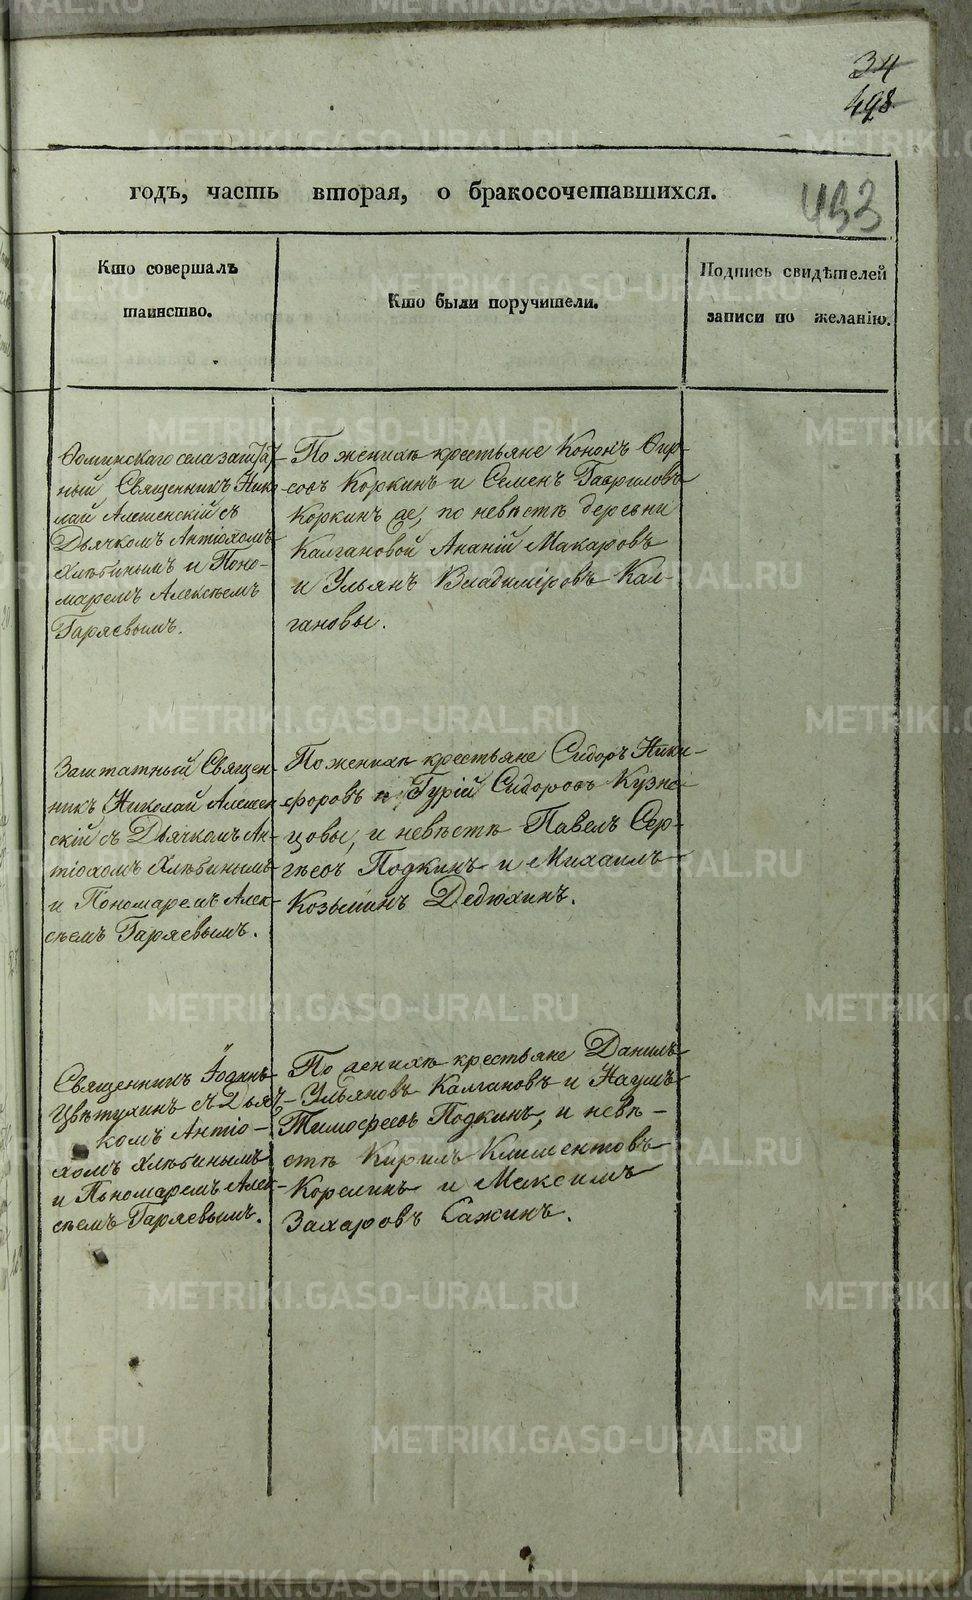 34
498
433
годъ, часть вторая, о бракосочетавшихся.
Кто совершалъ
таинство.
Кто были поручители.
Подпись свидѣтелей
записи по желанію.
Ѳоминскаго села заштат-
ный Священникъ Нико-
лай Алешенскій съ
Дьячкомъ Антіохомъ
Хлѣбинымъ и Поно-
маремъ Алексѣемъ
Гаряевымъ.
По женихѣ крестьяне Кононъ Фир-
совъ Коркинъ и Семенъ Гавриловъ
Коркинъ же, по невѣстѣ деревни
Калгановой Ананій Макаровъ
и Ульянъ Владиміровъ Кал-
гановы.
Заштатный Священ-
никъ Николай Алешен-
скій съ Дьячкомъ Ан-
тіохомъ Хлѣбинымъ
и Пономаремъ Алек-
сѣемъ Гаряевымъ.
По женихѣ крестьяне Сидоръ Ники-
форовъ и Гурій Сидоровъ Кузне-
цовы, и невѣстѣ Павелъ Сер-
гѣевъ Подкинъ и Михаилъ
Козьминъ Дедюхинъ.
Священникъ Іодинъ
Цвѣтухинъ съ Дьяч-
комъ Антіо-
хомъ Хлѣбинымъ
и Пономаремъ Алек-
сѣемъ Гаряевымъ.
По женихѣ крестьяне Данилъ
Ульяновъ Калгановъ и Наумъ
Тимофеевъ Подкинъ, и невѣ-
стѣ Кирилъ Климентовъ
Корелинъ и Максимъ
Захаровъ Сажинъ.
METRIKI.GASO-URAL.RU